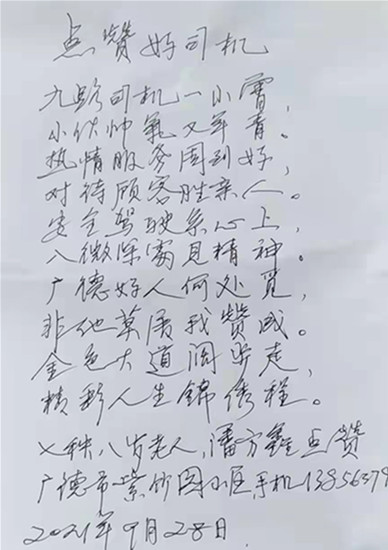 点赞好司机
九路司机一小霄,
小伙帅气又年青。
热情服务周到好,
对待顾客胜亲人。
安全驾驶系心上,
入微深处见精神。
广德好人何处觅,
非他莫属我赞成。
金色大道阔步走,
精彩人生锦绣程。
七秩八岁老人,潘方鑫点赞
广德市紫竹园小区,手机13956379
2021年9月28日